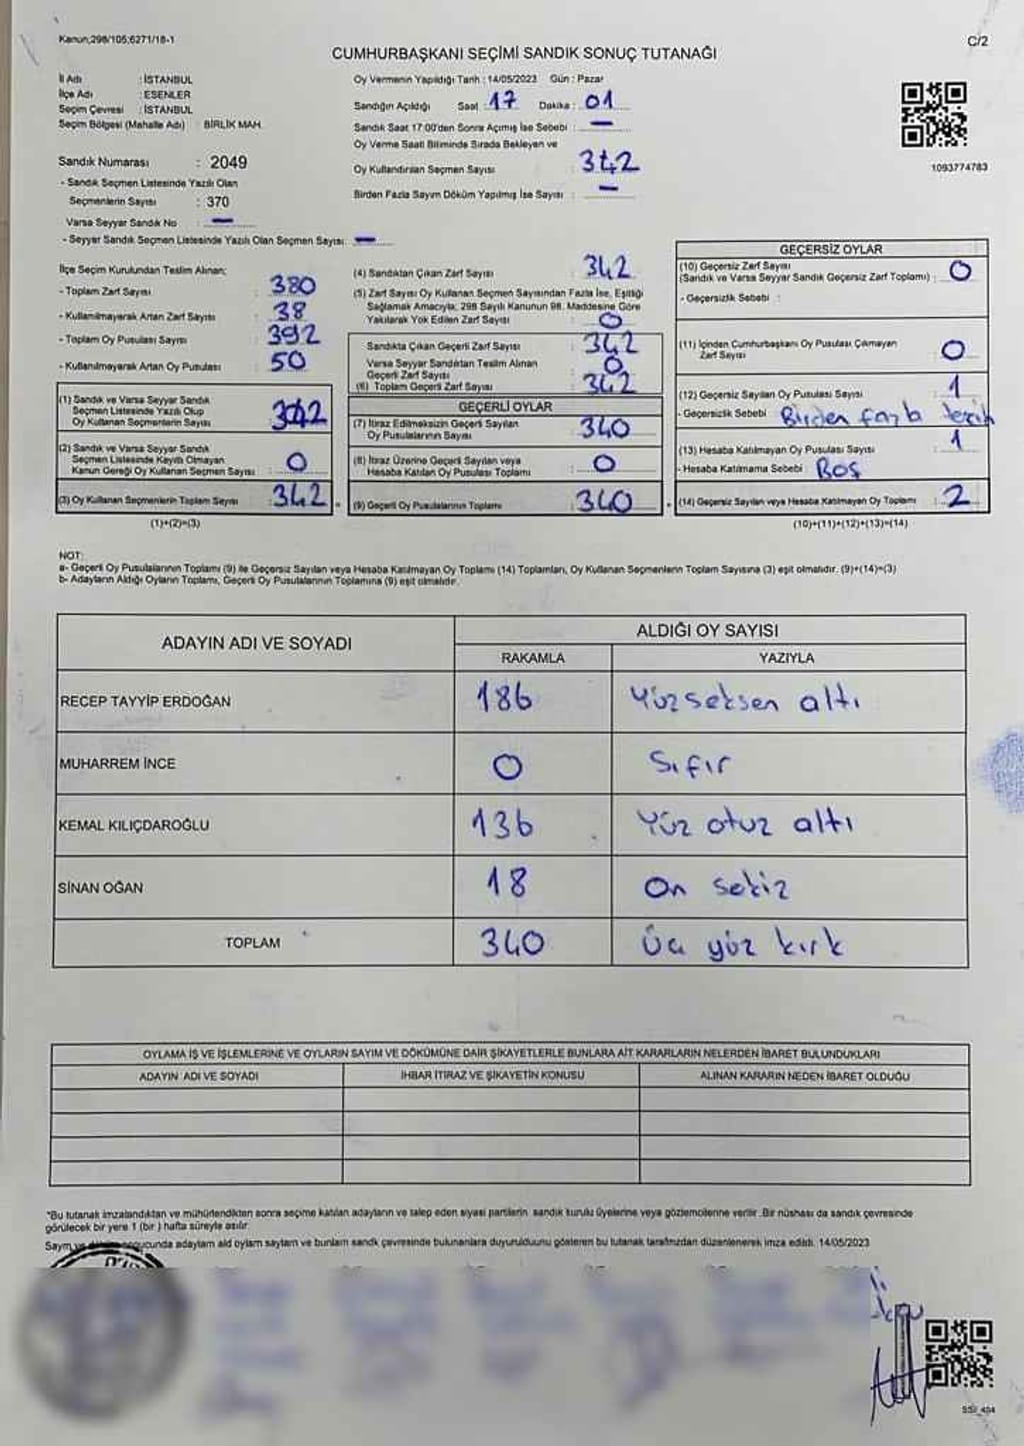 Kanun;298/105;6271/18-1
C/2
CUMHURBAŞKANI SEÇİMİ SANDIK SONUÇ TUTANAĞI
İl Adı : İSTANBUL
İlçe Adı : ESENLER
Seçim Çevresi : İSTANBUL
Seçim Bölgesi (Mahalle Adı) : BİRLİK MAH.
Sandık Numarası : 2049
- Sandık Seçmen Listesinde Yazılı Olan
Seçmenlerin Sayısı : 370
Varsa Seyyar Sandık No : —
- Seyyar Sandık Seçmen Listesinde Yazılı Olan Seçmen Sayısı: —
Oy Vermenin Yapıldığı Tarih : 14/05/2023 Gün : Pazar
Sandığın Açıldığı Saat : 17 Dakika : 01
Sandık Saat 17:00'den Sonra Açılmış İse Sebebi : —
Oy Verme Saati Bitiminde Sırada Bekleyen ve
Oy Kullandırılan Seçmen Sayısı : 342
Birden Fazla Sayım Döküm Yapılmış İse Sayısı : —
1093774783
İlçe Seçim Kurulundan Teslim Alınan;
- Toplam Zarf Sayısı : 380
- Kullanılmayarak Artan Zarf Sayısı : 38
- Toplam Oy Pusulası Sayısı : 392
- Kullanılmayarak Artan Oy Pusulası : 50
(1) Sandık ve Varsa Seyyar Sandık
Seçmen Listesinde Yazılı Olup
Oy Kullanan Seçmenlerin Sayısı : 342
(2) Sandık ve Varsa Seyyar Sandık
Seçmen Listesinde Kayıtlı Olmayan
Kanun Gereği Oy Kullanan Seçmen Sayısı : 0
(3) Oy Kullanan Seçmenlerin Toplam Sayısı : 342
(1)+(2)=(3)
(4) Sandıktan Çıkan Zarf Sayısı : 342
(5) Zarf Sayısı Oy Kullanan Seçmen Sayısından Fazla İse, Eşitliği
Sağlamak Amacıyla; 298 Sayılı Kanunun 98. Maddesine Göre
Yakılarak Yok Edilen Zarf Sayısı : 0
Sandıkta Çıkan Geçerli Zarf Sayısı : 342
Varsa Seyyar Sandıktan Teslim Alınan
Geçerli Zarf Sayısı : 0
(6) Toplam Geçerli Zarf Sayısı : 342
GEÇERLİ OYLAR
(7) İtiraz Edilmeksizin Geçerli Sayılan
Oy Pusulalarının Sayısı : 340
(8) İtiraz Üzerine Geçerli Sayılan veya
Hesaba Katılan Oy Pusulası Toplamı : 0
(9) Geçerli Oy Pusulalarının Toplamı : 340
GEÇERSİZ OYLAR
(10) Geçersiz Zarf Sayısı
(Sandık ve Varsa Seyyar Sandık Geçersiz Zarf Toplamı) : 0
- Geçersizlik Sebebi :
(11) İçinden Cumhurbaşkanı Oy Pusulası Çıkmayan
Zarf Sayısı : 0
(12) Geçersiz Sayılan Oy Pusulası Sayısı : 1
- Geçersizlik Sebebi : Birden fazla tercih
(13) Hesaba Katılmayan Oy Pusulası Sayısı : 1
- Hesaba Katılmama Sebebi : Boş
(14) Geçersiz Sayılan veya Hesaba Katılmayan Oy Toplamı : 2
(10)+(11)+(12)+(13)=(14)
NOT:
a- Geçerli Oy Pusulalarının Toplamı (9) ile Geçersiz Sayılan veya Hesaba Katılmayan Oy Toplamı (14) Toplamları, Oy Kullanan Seçmenlerin Toplam Sayısına (3) eşit olmalıdır. (9)+(14)=(3)
b- Adayların Aldığı Oyların Toplamı, Geçerli Oy Pusulalarının Toplamına (9) eşit olmalıdır.
ADAYIN ADI VE SOYADI ALDIĞI OY SAYISI
RAKAMLA YAZIYLA
RECEP TAYYİP ERDOĞAN 186 Yüzseksen altı
MUHARREM İNCE 0 Sıfır
KEMAL KILIÇDAROĞLU 136 Yüz otuz altı
SİNAN OĞAN 18 On sekiz
TOPLAM 340 Üç yüz kırk
OYLAMA İŞ VE İŞLEMLERİNE VE OYLARIN SAYIM VE DÖKÜMÜNE DAİR ŞİKAYETLERLE BUNLARA AİT KARARLARIN NELERDEN İBARET BULUNDUKLARI
ADAYIN ADI VE SOYADI İHBAR İTİRAZ VE ŞİKAYETİN KONUSU ALINAN KARARIN NEDEN İBARET OLDUĞU
*Bu tutanak imzalandıktan ve mühürlendikten sonra seçime katılan adayların ve talep eden siyasi partilerin sandık kurulu üyelerine veya gözlemcilerine verilir. Bir nüshası da sandık çevresinde
görülecek bir yere 1 (bir) hafta süreyle asılır.
Sayım ve sonucunda adayların ald oyların sayıları ve bunların sandk çevresinde bulunanlara duyurulduunu gösteren bu tutanak tarafımızdan düzenlenerek imza edildi. 14/05/2023